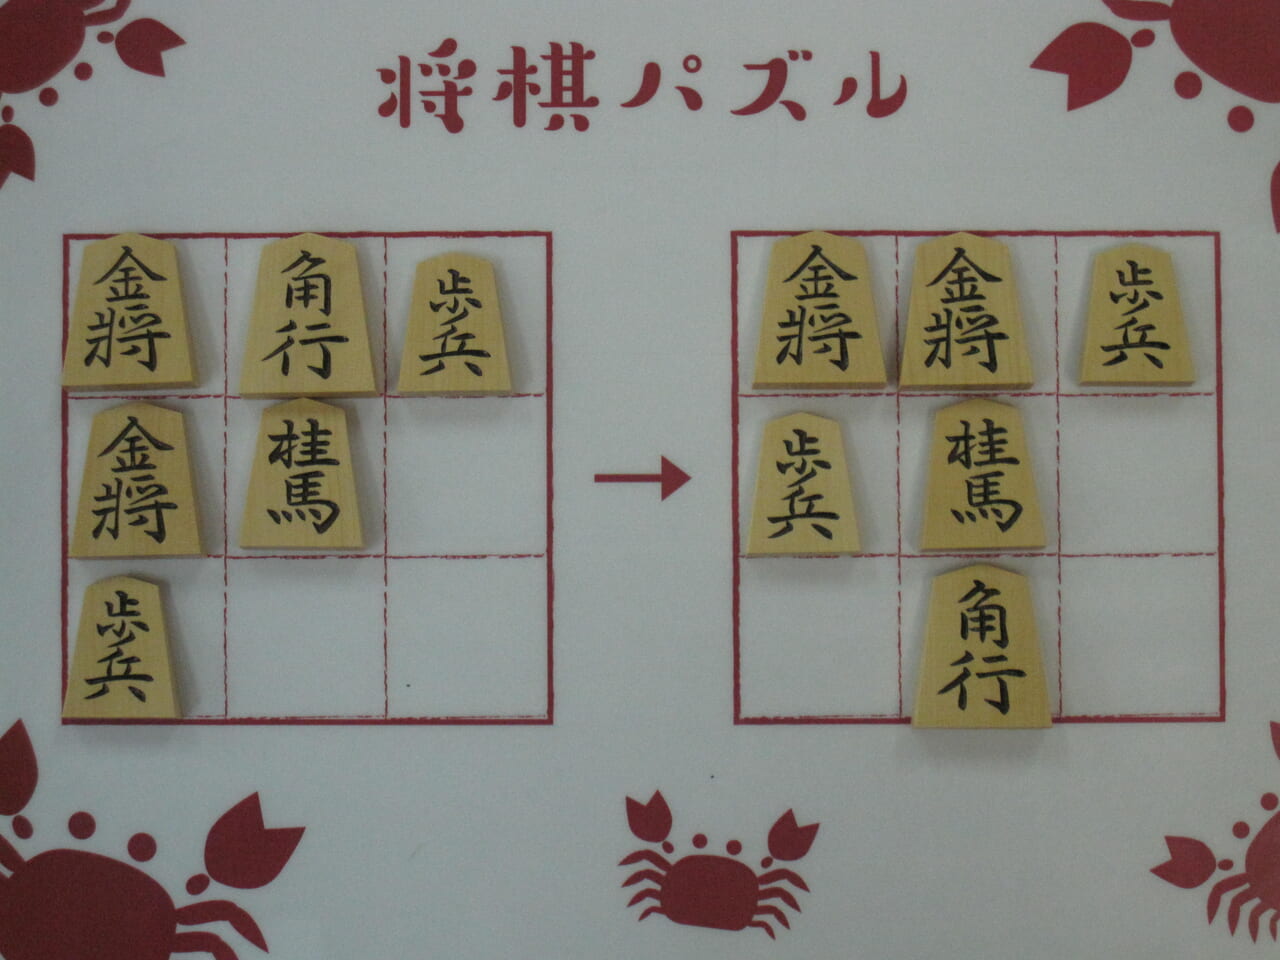 将棋パズル
金將 角行 歩兵 金將 金將 歩兵
金將 桂馬 歩兵 桂馬
歩兵 角行